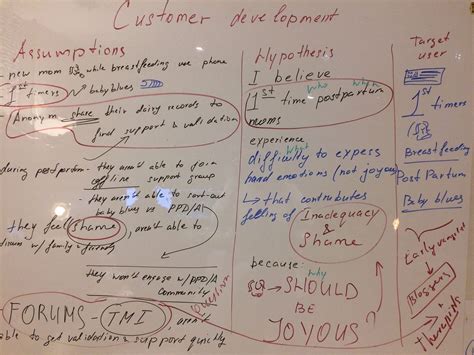 Customer development
Assumptions
- new mom while breastfeeding use phone
1st timers
babyblues
Anonym share their dairy records to
find support & validation
during postpartum - they aren't able to join
offline support group
- they aren't able to sort-out
baby blues vs PPD/A
they feel shame, aren't able to
w/ family & friends
they won't engage w/ PPD/A
community
Question
FORUMS - TMI, aren't
able to get validation & support quickly
Hypothesis
I believe
who when
1st time postpartum
moms
experience
what
difficulty to expess
hard emotions (not joyous)
→ that contributes
felling of Inadequacy
&
Shame
because:
why
SHOULD
BE
JOYOUS
Target
user
1st
timers
Breastfeeding
Post Partum
Baby blues
Early vangelist
Bloggers
therapists